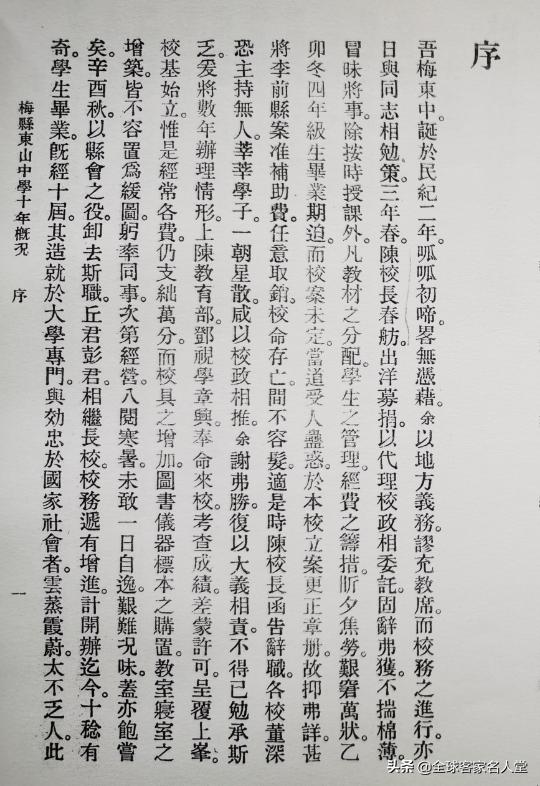 序
吾梅東中。誕於民紀二年。呱呱初啼。畧無憑藉。余以地方義務。謬充教席。而校務之進行。亦
日與同志相勉策。三年春。陳校長春舫。出洋募捐。以代理校政相委託。固辭弗獲。不揣棉薄。
冒昧將事。除按時授課外。凡教材之分配。學生之管理。經費之籌措。昕夕焦勞。艱窘萬狀。乙
卯冬。四年級生畢業期迫。而校案未定。當道受人蠱惑。於本校立案更正章册。故抑弗詳。甚
將李前縣案准補助費。任意取銷。校命存亡。間不容髮。適是時陳校長函告辭職。各校董深
恐主持無人。莘莘學子。一朝星散。咸以校政相推。余謝弗勝。復以大義相責。不得已勉承斯
乏。爰將數年辦理情形。上陳教育部。鄧視學章興。奉命來校。考查成績。差蒙許可。呈覆上峯。
校基始立。惟是經常各費。仍支絀萬分。而校具之增加。圖書儀器標本之購置。教室寢室之
增築。皆不容置爲緩圖。躬率同事。次第經營。八閱寒暑。未敢一日自逸。艱難況味。蓋亦飽嘗
矣。辛酉秋。以縣會之役。卸去斯職。丘君彭君。相繼長校。校務遞有增進。計開辦迄今。十稔有
奇。學生畢業。旣經十屆。其造就於大學專門。與効忠於國家社會者。雲蒸霞蔚。太不乏人。此
梅縣東山中學十年概況 序 一
头条 @全球客家名人堂